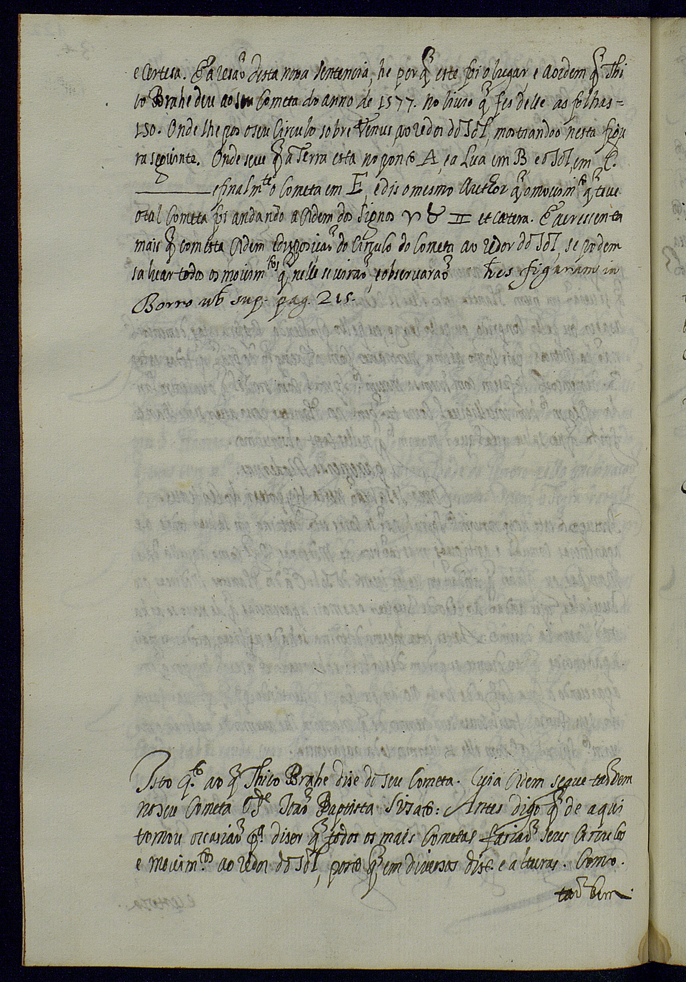 e certesa. E a resaõ desta nova sentencia, he por q̃ este foi o lugar e a ordem q̃ Thi
co Brahe deu ao seu Cometa do anno de 1577. no livro q̃ fes delle as folhas =
150. Onde lhe poz o seu Circulo sobre Venus, ao redor do Sol, mostrando nesta figu
ra seguinte. Onde q̃ a Terra esta no ponto A, e a Lua em B e o Sol, em C.
e finalmte o Cometa em E, e dis o mesmo Author q̃ o movimto q̃ teve
o tal Cometa foi andando a ordem dos Signos ♈ ♉ ♊ et cætera. E acresenta
mais q̃ com esta ordem do Circulo do Cometa ao redor do Sol, se podem
salvar todos os movimtos q̃ nelle se viraõ, e observaraõ figuram in
Borro ubi sup. pag. 215.
Isto qto ao q̃ Thico Brahe dise do seu Cometa. Cuia ordem segue tãbem
no seu Cometa o Pe Joaõ Baptista Sisato: Antes digo q̃ de aqui
tomou occasiaõ pa diser q̃ todos os mais Cometas fariaõ seus Circulos
e movimtos ao redor do Sol, posto q̃ em diversas dist. e alturas. Como
taõ bem